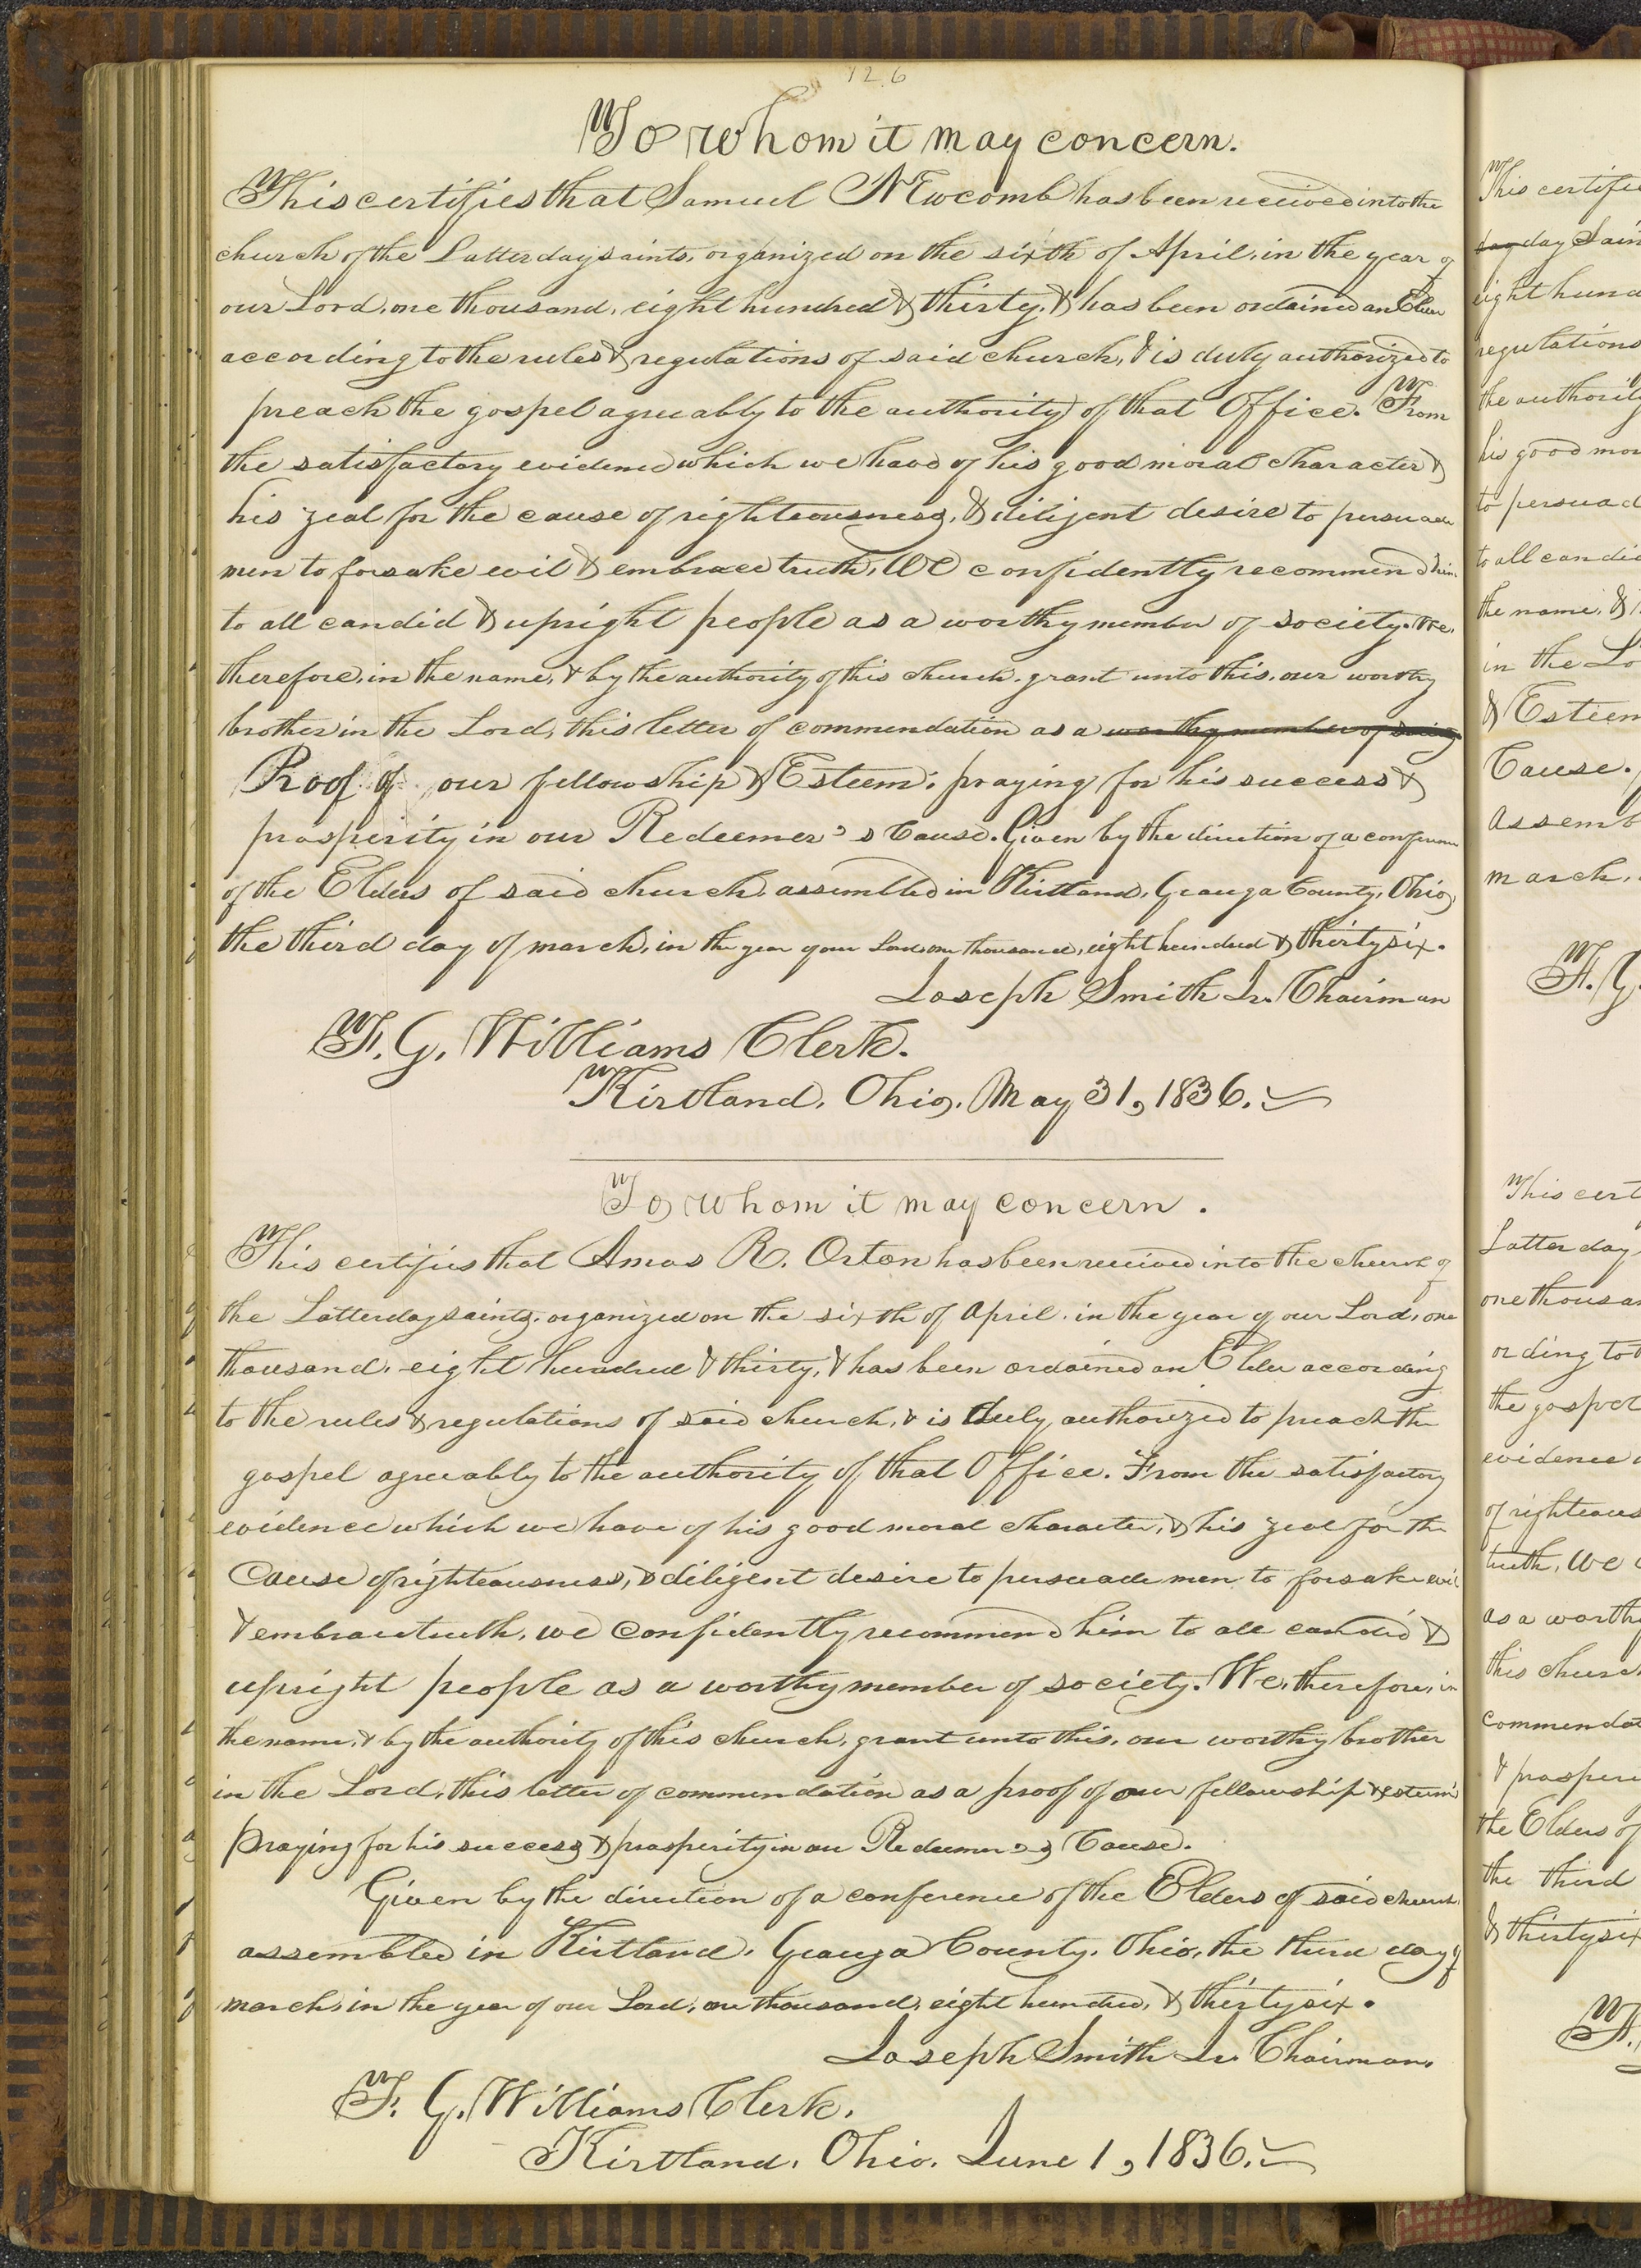 126
To whom it may concern.
This certifies that Samuel Newcomb has been received into the
church of the Latterday saints, organized on the sixth of April, in the year of
our Lord, one thousand, eight hundred & thirty, & has been ordained an Elder
according to the rules & regulations of said church, & is duly authorized to
preach the gospel agreeably to the authority of that Office. From
the satisfactory evidence which we have of his good moral character &
his zeal for the cause of righteousness, & diligent desire to persuade
men to forsake evil & embrace truth, We confidently recommend him
to all candid & upright people as a worthy member of society. We,
therefore, in the name, & by the authority of this church, grant unto this, our worthy
brother in the Lord, this letter of commendation as a worthy member of
Proof of our fellowship & Esteem; praying for his success &
prosperity in our Redeemer's Cause. Given by the direction of a conference
of the Elders of said church, assembled in Kirtland, Geauga County, Ohio,
the third day of march, in the year of our Lord, one thousand, eight hundred & thirty six.
Joseph Smith Jr. Chairman
F. G. Williams Clerk.
Kirtland, Ohio, May 31, 1836.
To whom it may concern.
This certifies that Amos R. Orton has been received into the church of
the Latterday saints, organized on the sixth of April, in the year of our Lord, one
thousand, eight hundred & thirty, & has been ordained an Elder according
to the rules & regulations of said church, & is duly authorized to preach the
gospel agreeably to the authority of that Office. From the satisfactory
evidence which we have of his good moral character, & his zeal for the
Cause of righteousness, & diligent desire to persuade men to forsake evil
& embrace truth, we confidently recommend him to all candid &
upright people as a worthy member of society. We, therefore, in
the name, & by the authority of this church, grant unto this, our worthy brother
in the Lord, this letter of commendation as a proof of our fellowship & esteem
Praying for his success & prosperity in our Redeemer's Cause.
Given by the direction of a conference of the Elders of said church
assembled in Kirtland, Geauga County, Ohio, the third day of
march, in the year of our Lord, one thousand, eight hundred, & thirty six.
Joseph Smith Jr. Chairman.
F. G. Williams Clerk.
Kirtland, Ohio, June 1, 1836.
This certifie
day day Sain
eight hund
regulations
the authority
his good mor
to persuad
to all candi
the name, &
in the Lo
& Esteem
Cause.
Assemb
march,
F. G.
This cert
Latter day
one thousa
ording to
the gospel
evidence
of righteous
truth, We
as a worthy
this church
commendat
& prosperi
the Elders of
the third
& thirty six
F.